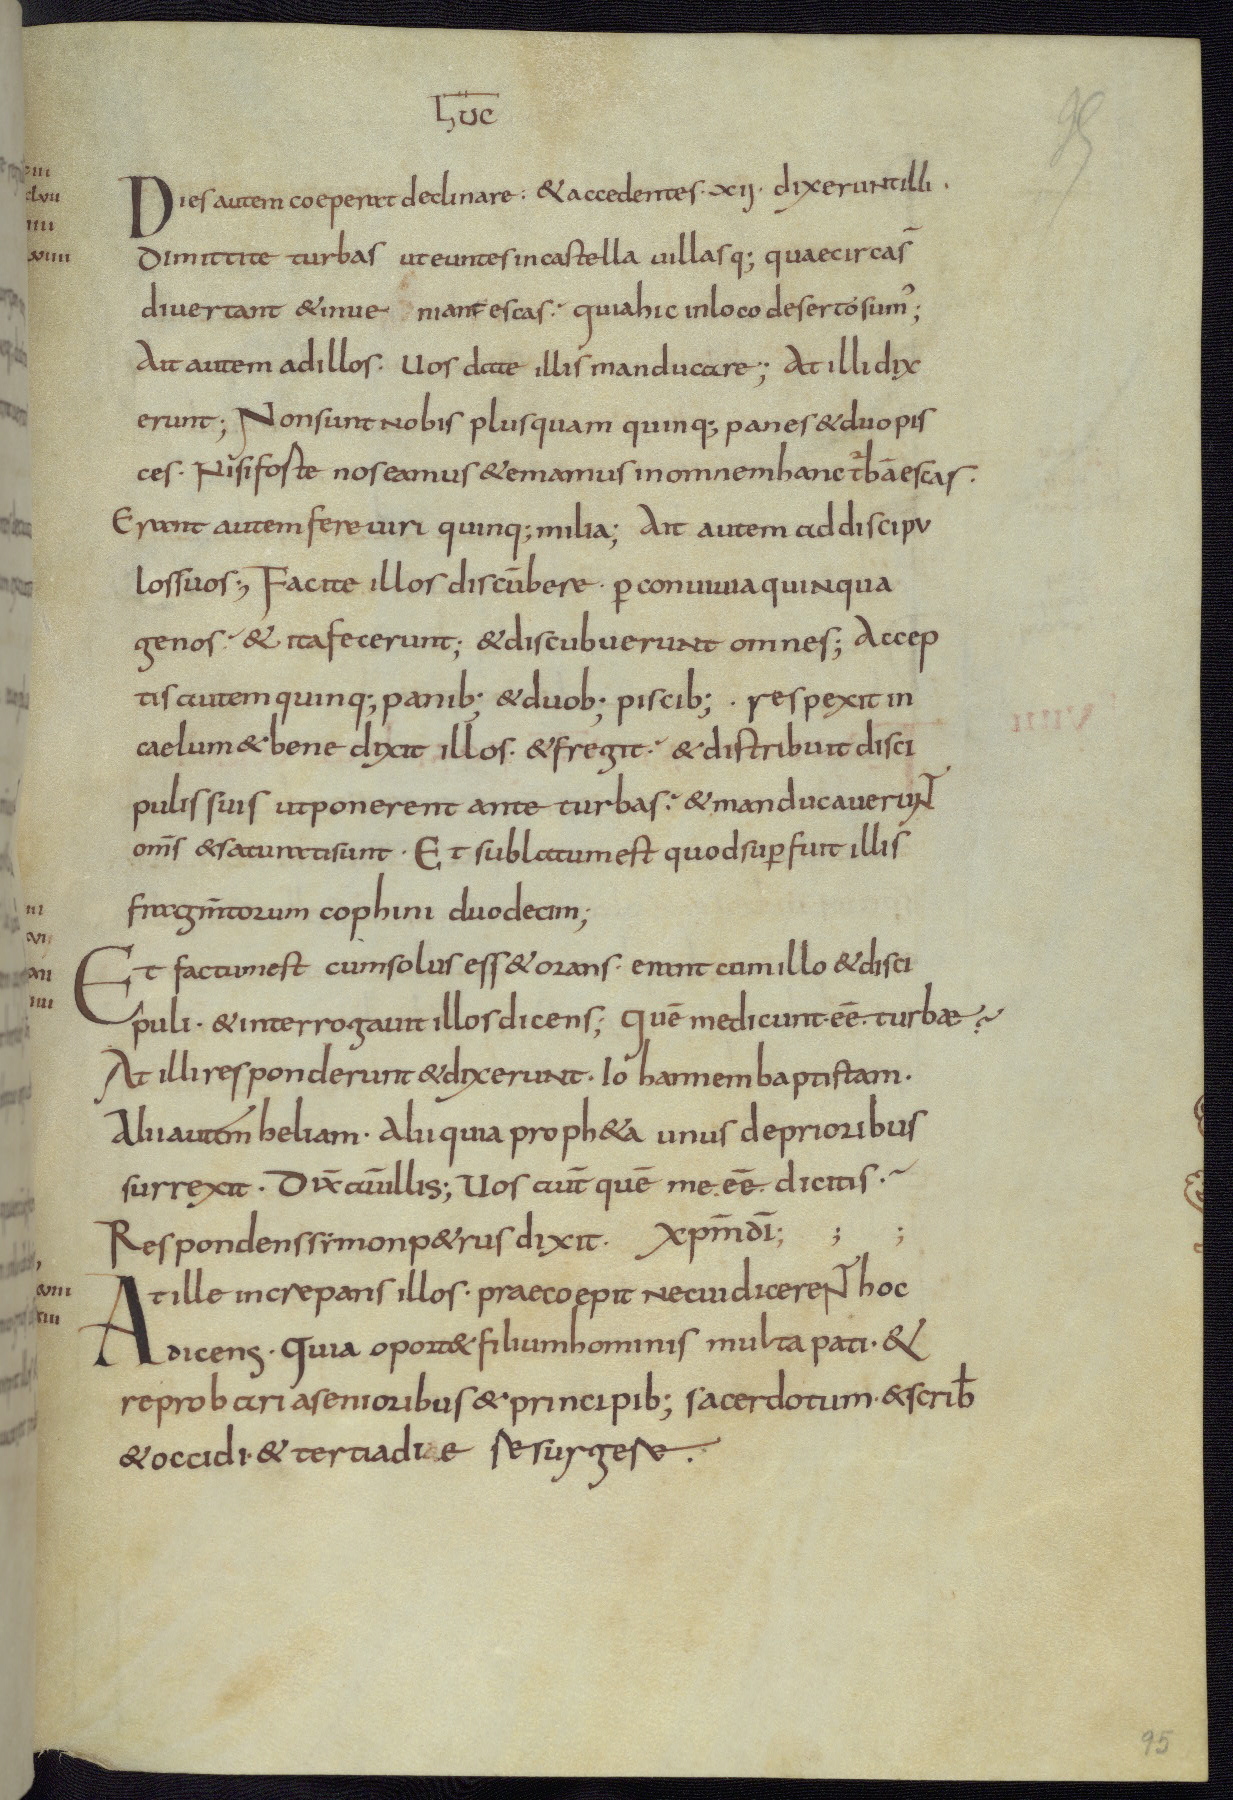 LūC
95
Dies autem coeperat declinare · & accedentes · xij · dixerunt illi ·
Dimittite turbas ut euntes in castella uillasq; quae circa s̄
divertant & inue niant escas · quia hic in loco deserto sum᾽;
Ait autem ad illos · Uos date illis manducare; At illi dix
erunt; Non sunt nobis plus quam quinq; panes & duo pis
ces · Nisi foste nos eamus & emamus in omnem hanc t̄bā escas ·
Erant autem fere uiri quinq; milia; Ait autem ad discipu
los suos; Facite illos discūbere · ꝑ conuiuia quinqua
genos · & ita fecerunt; & discubuerunt omnes; Accep
tis autem quinq; panib; & duob; piscib; · respexit in
caelum & bene dixit illos · & fregit · & distribuit disci
pulis suis ut ponerent ante turbas · & manducauerun̄t
om̄s & saturati sunt · Et sublatum est quod suꝑfuit illis
fragm̄torum cophini duodecim;
Et factum est cum solus ess& orans · erant cum illo & disci
puli · & interrogauit illos dicens; Quē me dicunt · ēē · turbae ·
At illi responderunt & dixerunt · Iohannem baptistam ·
Alii autem heliam · Alii quia proph&a unus de prioribus
surrexit · Dix̄ aūt illis; Uos aūt quē me · ēē · dicitis ·
Respondens symon p&rus dixit · xpm̄ dī; ; ;
At ille increpans illos · praecoepit ne cui diceren̄t hoc
dicens · Quia oport& filium hominis multa pati · &
reprobari a senioribus & principib; sacerdotum · & scrib̄
& occidi · & tertia die resurgere ·
VIIII
95